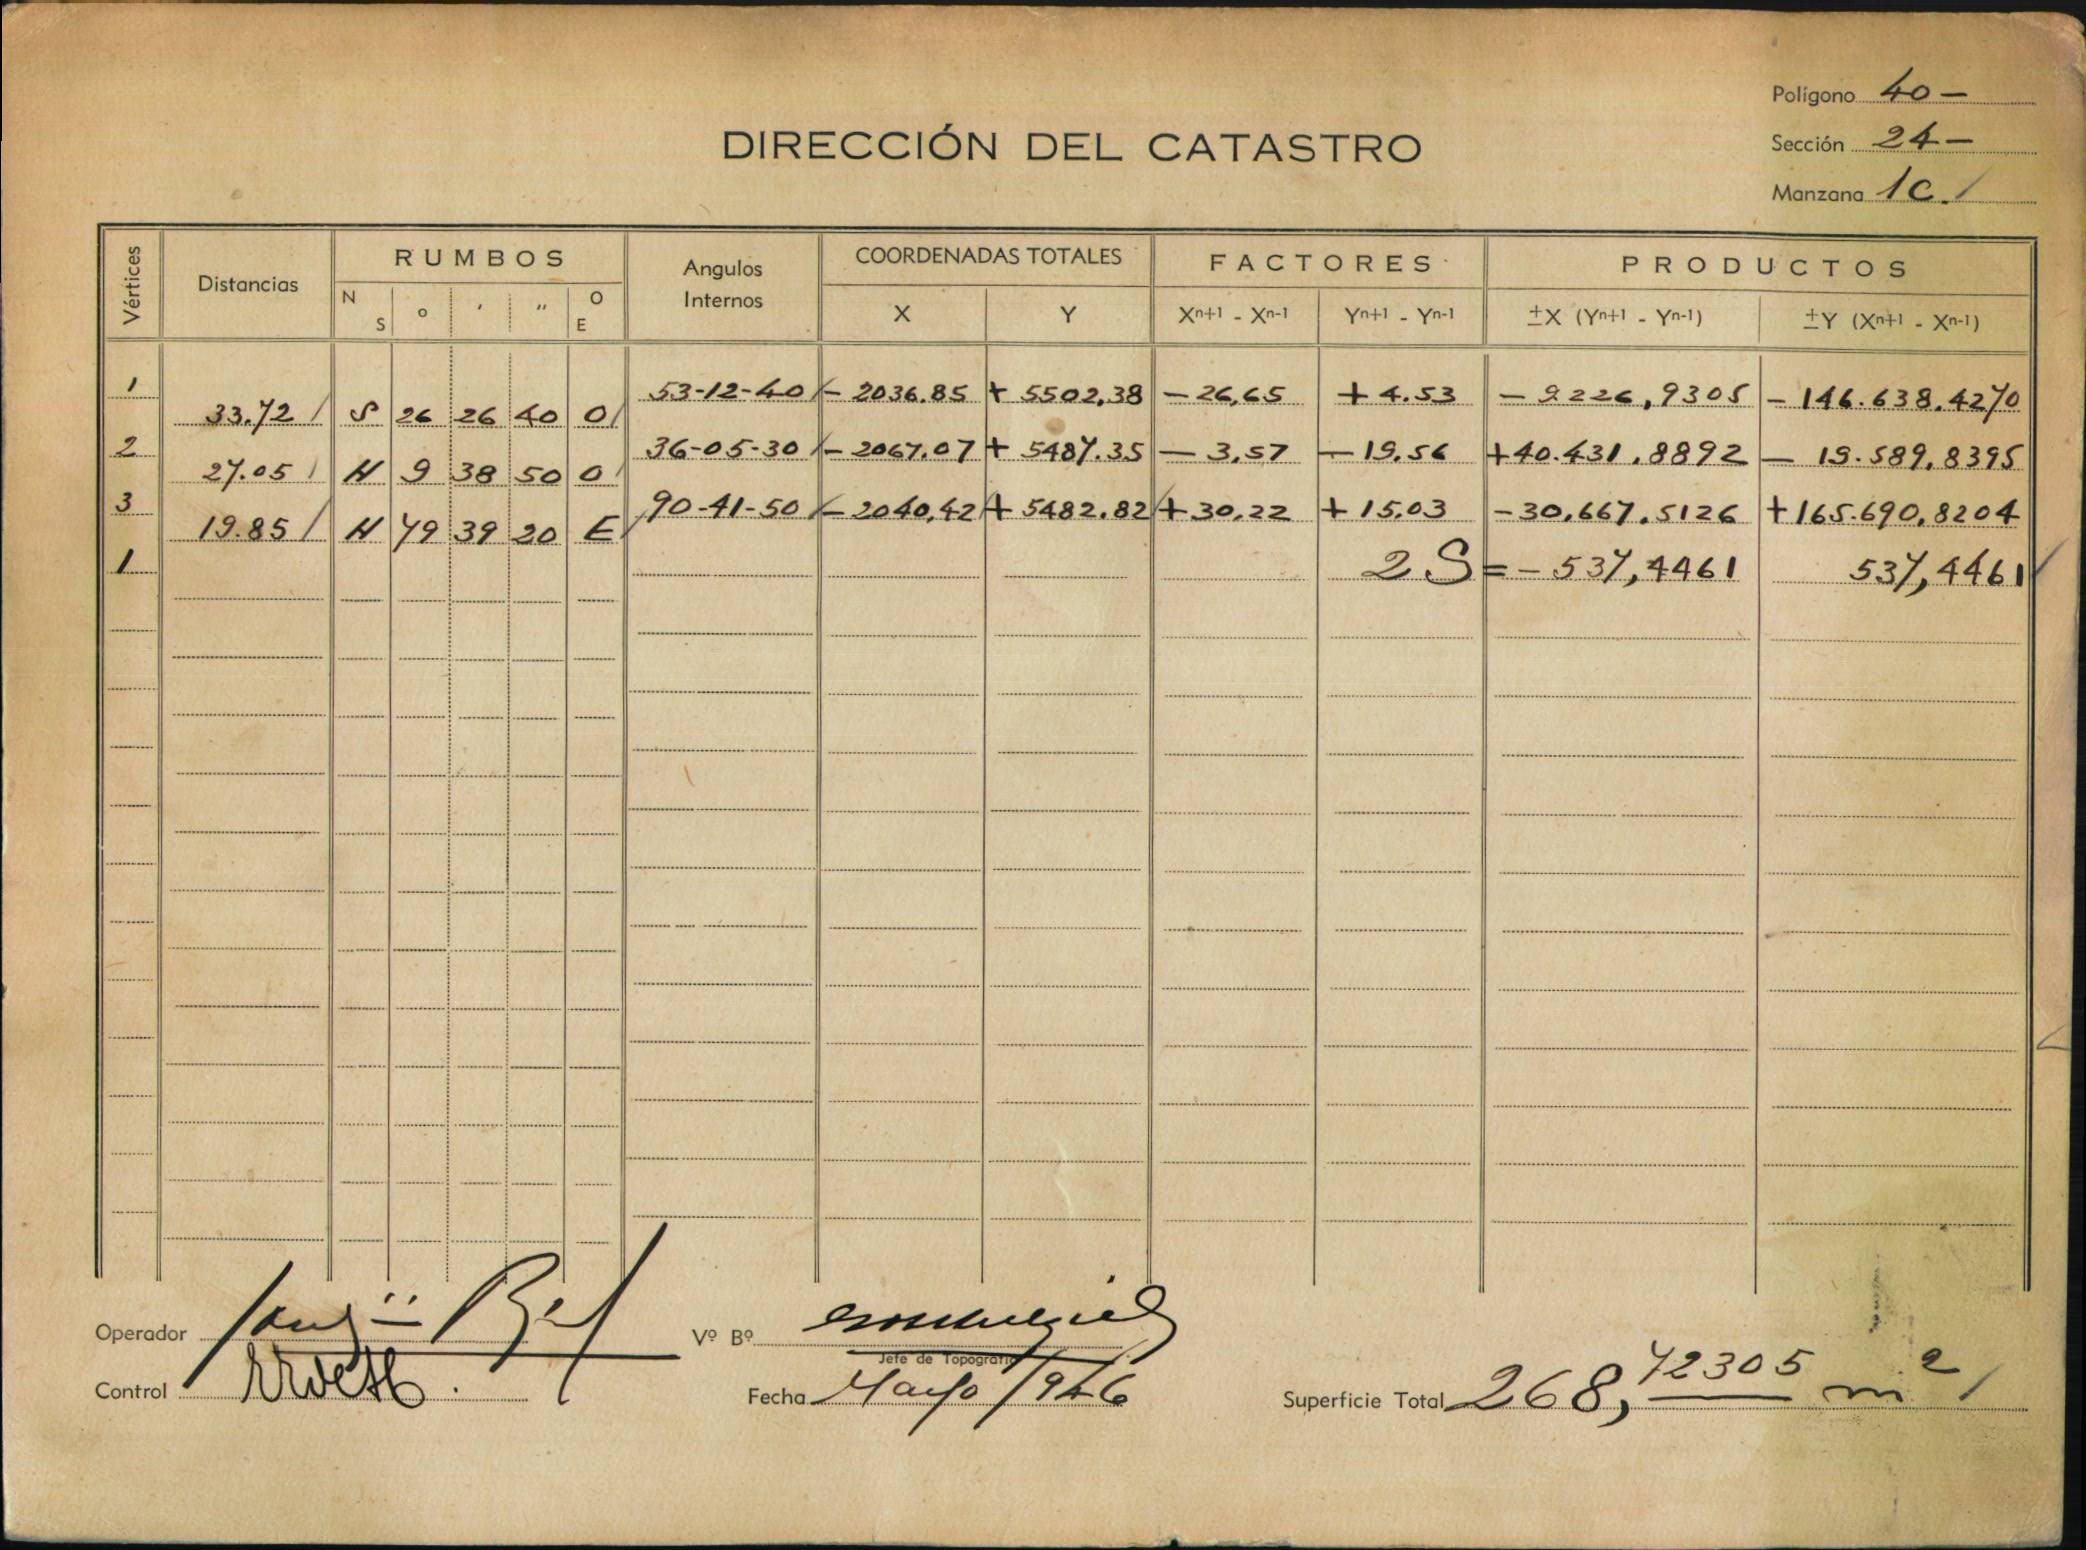 Polígono 40 —
Sección 24 —
Manzana 1C.
DIRECCIÓN DEL CATASTRO
Vértices Distancias RUMBOS Angulos Internos COORDENADAS TOTALES FACTORES PRODUCTOS
N S o ' '' O E X Y Xn+1 - Xn-1 Yn+1 - Yn-1 ±X (Yn+1 - Yn-1) ±Y (Xn+1 - Xn-1)
1 53-12-40 - 2036.85 + 5502,38 - 26,65 + 4.53 - 9226,9305 - 146.638.4270
33.72 S 26 26 40 O
2 36-05-30 - 2067.07 + 5487.35 - 3,57 - 19,56 +40.431.8892 - 19.589,8395
27.05 N 9 38 50 O
3 90-41-50 - 2040,42 + 5482.82 + 30.22 + 15.03 -30,667.5126 +165.690,8204
19.85 N 79 39 20 E
1 2 S = - 537,4461 537,4461
Operador
Vº Bº
Jefe de Topografía
Control
Fecha Mayo 1946
Superficie Total 268,72305 m2